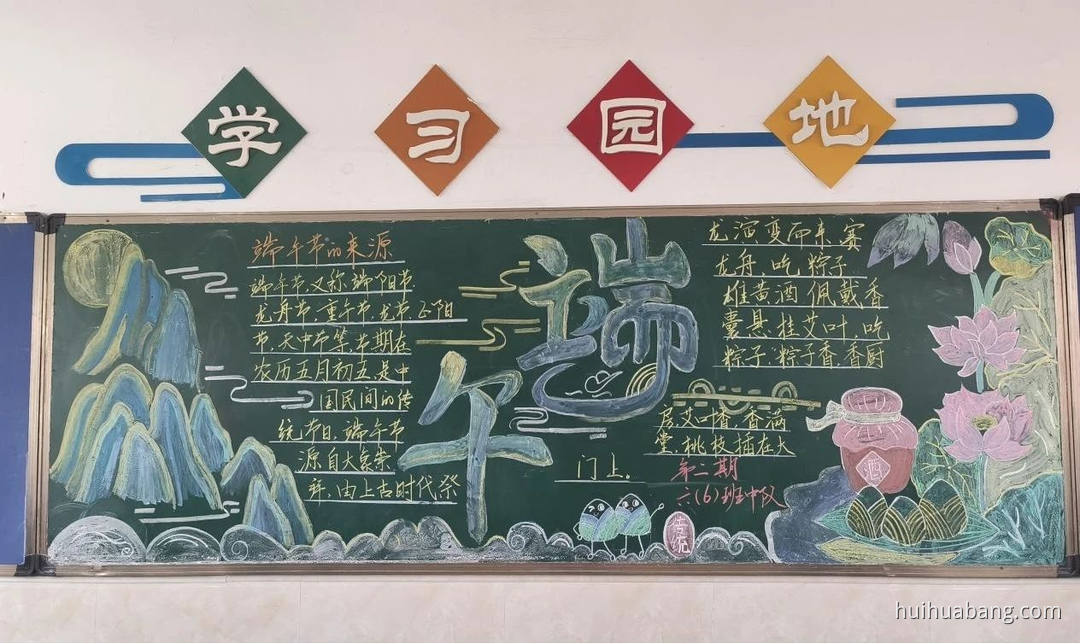 学习园地
端午节的来源
端午节,又称端阳节
龙舟节、重午节、龙节、正阳
节、天中节等,节期在
农历五月初五,是中
国民间的传
统节日。端午节
源自天象崇
拜,由上古时代祭
端午
龙演变而来,赛
龙舟,吃粽子
雄黄酒,佩戴香
囊悬挂艾叶,吃
粽子,粽子香,香厨
房,艾叶香,香满
堂,桃枝插在大
门上。
第二期
六(6)班中队
酒
传统
huihuabang.com